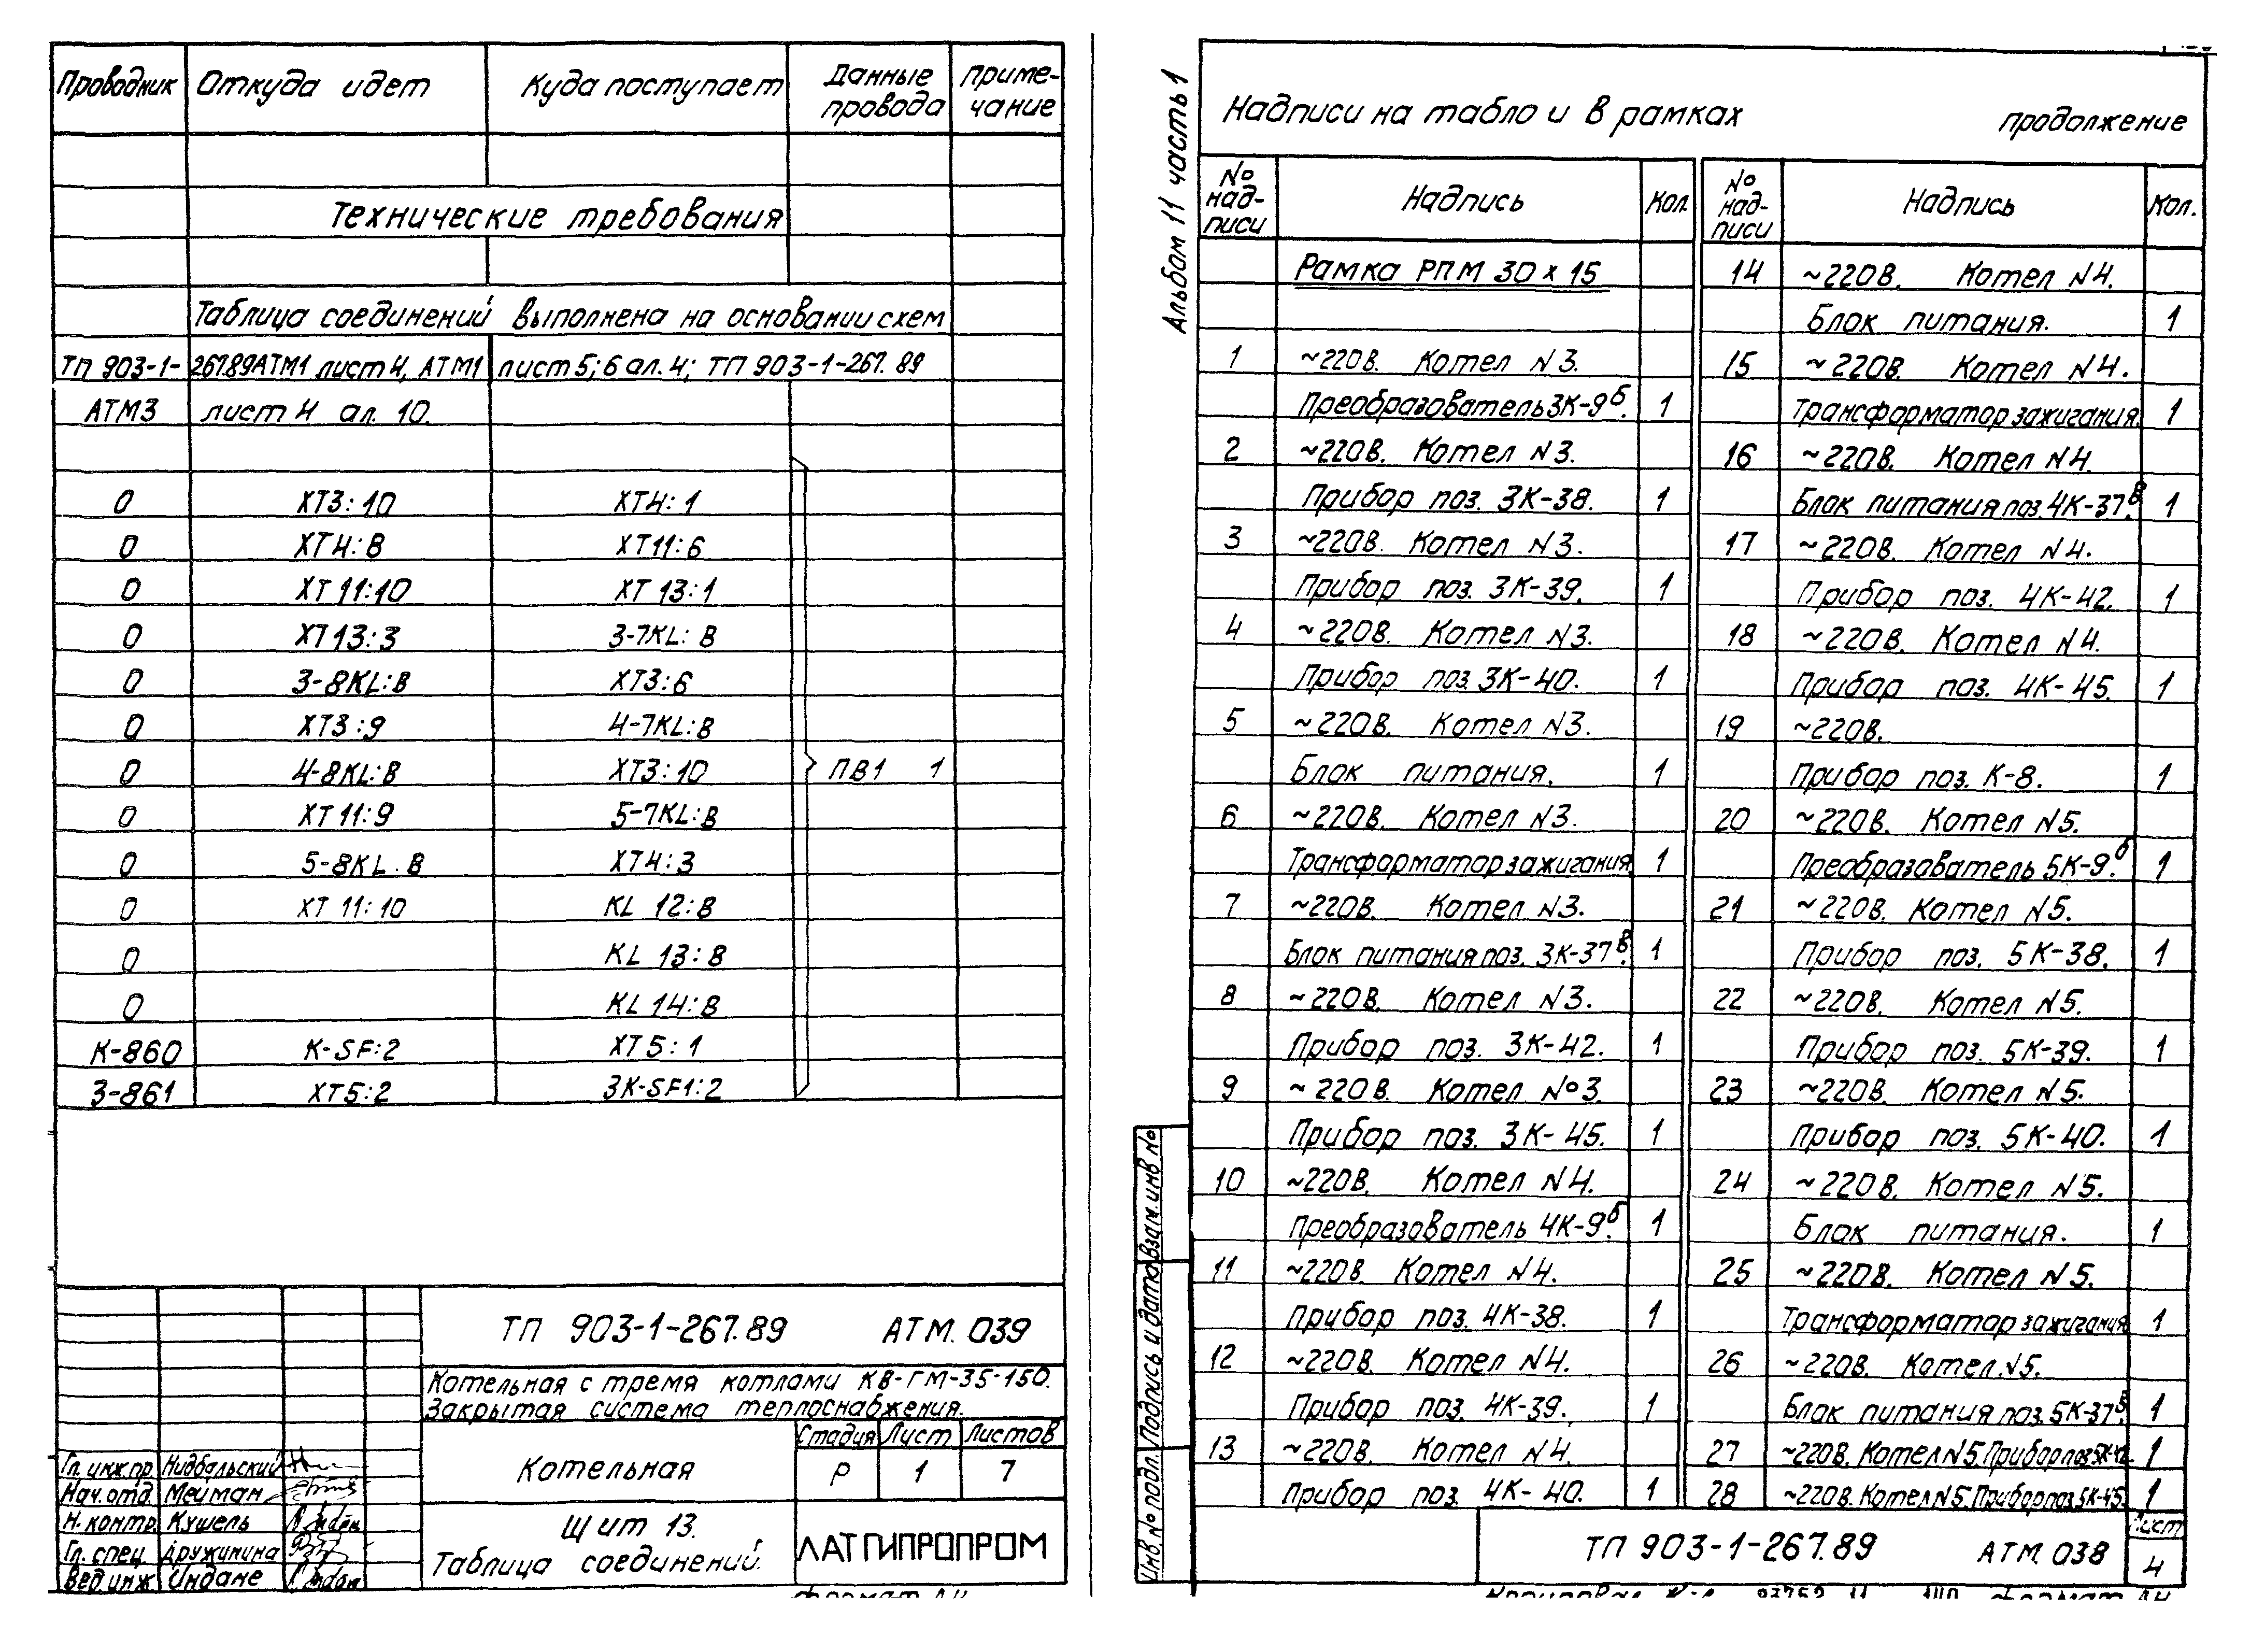 Проводник Откуда идет Куда поступает Данные провода Приме-чание
Технические требования
Таблица соединений выполнена на основании схем
ТП 903-1-267.89АТМ1 лист 4, АТМ1 лист 5; 6 ал. 4; ТП 903-1-267.89
АТМ3 лист 4 ал. 10.
0 ХТ3:10 ХТ4:1
0 ХТ4:8 ХТ11:6
0 ХТ11:10 ХТ13:1
0 ХТ13:3 3-7KL:В
0 3-8KL:В ХТ3:6
0 ХТ3:9 4-7KL:В
0 4-8KL:В ХТ3:10 ПВ1 1
0 ХТ11:9 5-7KL:В
0 5-8KL.В ХТ4:3
0 ХТ11:10 KL12:В
0 KL13:В
0 KL14:В
К-860 К-SF:2 ХТ5:1
3-861 ХТ5:2 3К-SF1:2
ТП 903-1-267.89 АТМ.039
Котельная с тремя котлами КВ-ГМ-35-150.
Закрытая система теплоснабжения.
Котельная
Стадия Лист Листов
Р 1 7
Гл. инж.пр. Нидбальский
Нач. отд. Мейман
Н. контр. Кушель
Гл. спец. Дружинина
Вед.инж. Индане
Щит 13.
Таблица соединений.
ЛАТГИПРОПРОМ
Формат А4
Альбом 11 часть 1
Надписи на табло и в рамках
продолжение
№ над-писи Надпись Кол. № над-писи Надпись Кол.
Рамка РПМ 30х15
1 ~220В. Котел N3.
Преобразователь 3К-9б. 1
2 ~220В. Котел N3.
Прибор поз. 3К-38. 1
3 ~220В. Котел N3.
Прибор поз. 3К-39. 1
4 ~220В. Котел N3.
Прибор поз. 3К-40. 1
5 ~220В. Котел N3.
Блок питания. 1
6 ~220В. Котел N3.
Трансформатор зажигания 1
7 ~220В. Котел N3.
Блок питания поз. 3К-37в. 1
8 ~220В. Котел N3.
Прибор поз. 3К-42. 1
9 ~220В. Котел №3.
Прибор поз. 3К-45. 1
10 ~220В. Котел N4.
Преобразователь 4К-9б. 1
11 ~220В. Котел N4.
Прибор поз. 4К-38. 1
12 ~220В. Котел N4.
Прибор поз. 4К-39. 1
13 ~220В. Котел N4.
Прибор поз. 4К-40. 1
14 ~220В. Котел N4.
Блок питания. 1
15 ~220В. Котел N4.
Трансформатор зажигания. 1
16 ~220В. Котел N4.
Блок питания поз. 4К-37в. 1
17 ~220В. Котел N4.
Прибор поз. 4К-42. 1
18 ~220В. Котел N4.
Прибор поз. 4К-45. 1
19 ~220В.
Прибор поз. К-8. 1
20 ~220В. Котел N5.
Преобразователь 5К-9б. 1
21 ~220В. Котел N5.
Прибор поз. 5К-38. 1
22 ~220В. Котел N5.
Прибор поз. 5К-39. 1
23 ~220В. Котел N5.
Прибор поз. 5К-40. 1
24 ~220В. Котел N5.
Блок питания. 1
25 ~220В. Котел N5.
Трансформатор зажигания 1
26 ~220В. Котел N5.
Блок питания поз. 5К-37в. 1
27 ~220В. Котел N5. Прибор поз. 5К-42. 1
28 ~220В. Котел N5. Прибор поз. 5К-45. 1
Инв.№ подл. Подпись и дата Взам.инв №
ТП 903-1-267.89 АТМ.038
Лист
4
Формат А4